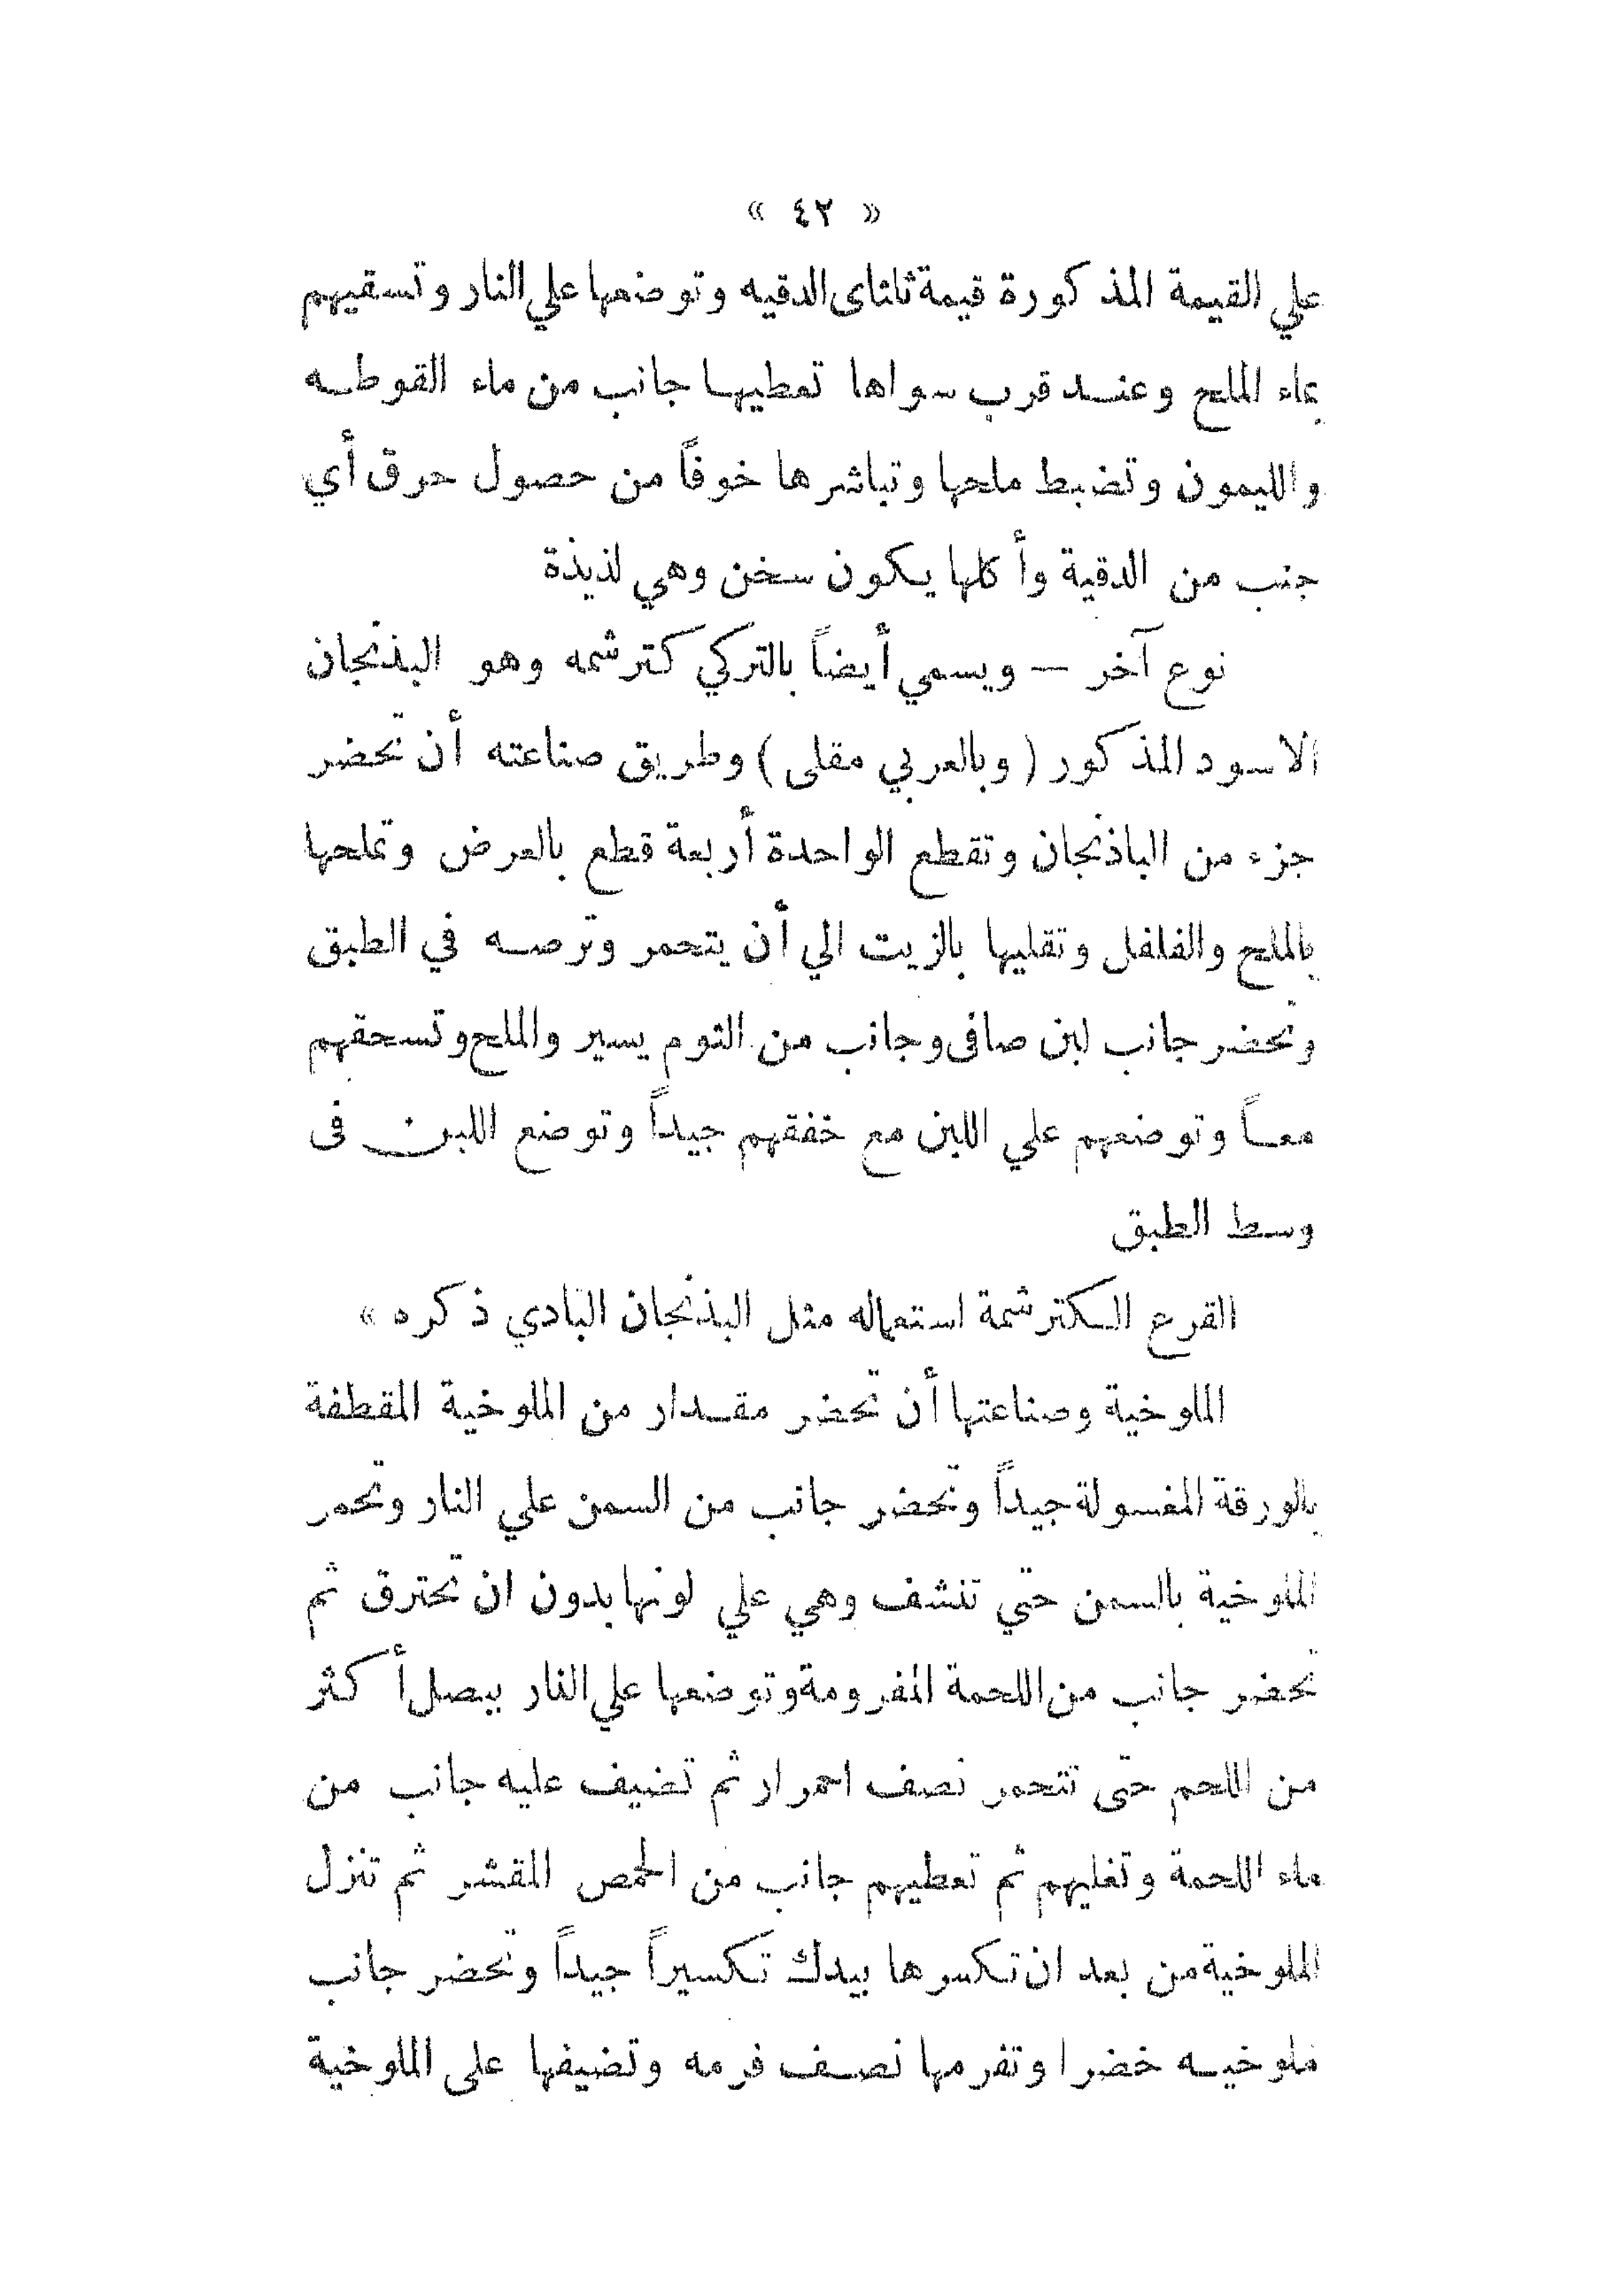 « ٤٢ »
علي القيمة المذكورة قيمة ثلثاى الدقيه وتوضعها علي النار وتسقيهم
بماء الملح وعنـد قرب سواها تعطيهـا جانب من ماء القوطـه
والليمون وتضبط ملحها وتباشرها خوفاً من حصول حرق أي
جنب من الدقية وأكلها يكون سخن وهي لذيذة
نوع آخر — ويسمي أيضاً بالتركي كترشمه وهو البذنجان
الاسود المذكور (وبالعربي مقلى) وطريق صناعته أن تحضر
جزء من الباذنجان وتقطع الواحدة أربعة قطع بالعرض وتملحها
بالملح والفلفل وتقليها بالزيت الي أن يتحمر وترصـه في الطبق
وتحضر جانب لبن صافى وجانب من الثوم يسير والملح وتسحقهم
معـاً وتوضعهم علي اللبن مع خفقهم جيداً وتوضع اللبن فى
وسط الطبق
القرع الكترشمة استعماله مثل البذنجان البادي ذكره »
الملوخية وصناعتها أن تحضر مقـدار من الملوخية المقطفة
بالورقة المغسولة جيداً وتحضر جانب من السمن علي النار وتحمر
الملوخية بالسمن حتي تنشف وهي علي لونها بدون ان تحترق ثم
تحضر جانب من اللحمة المفرومة وتوضعها علي النار ببصل أكثر
من اللحم حتى تتحمر نصف احمرار ثم تضيف عليه جانب من
ماء اللحمة وتغليهم ثم تعطيهم جانب من الحمص المقشر ثم تنزل
الملوخية من بعد ان تكسرها بيدك تكسيراً جيداً وتحضر جانب
ملوخيـه خضرا وتفرمها نصـف فرمه وتضيفها على الملوخية